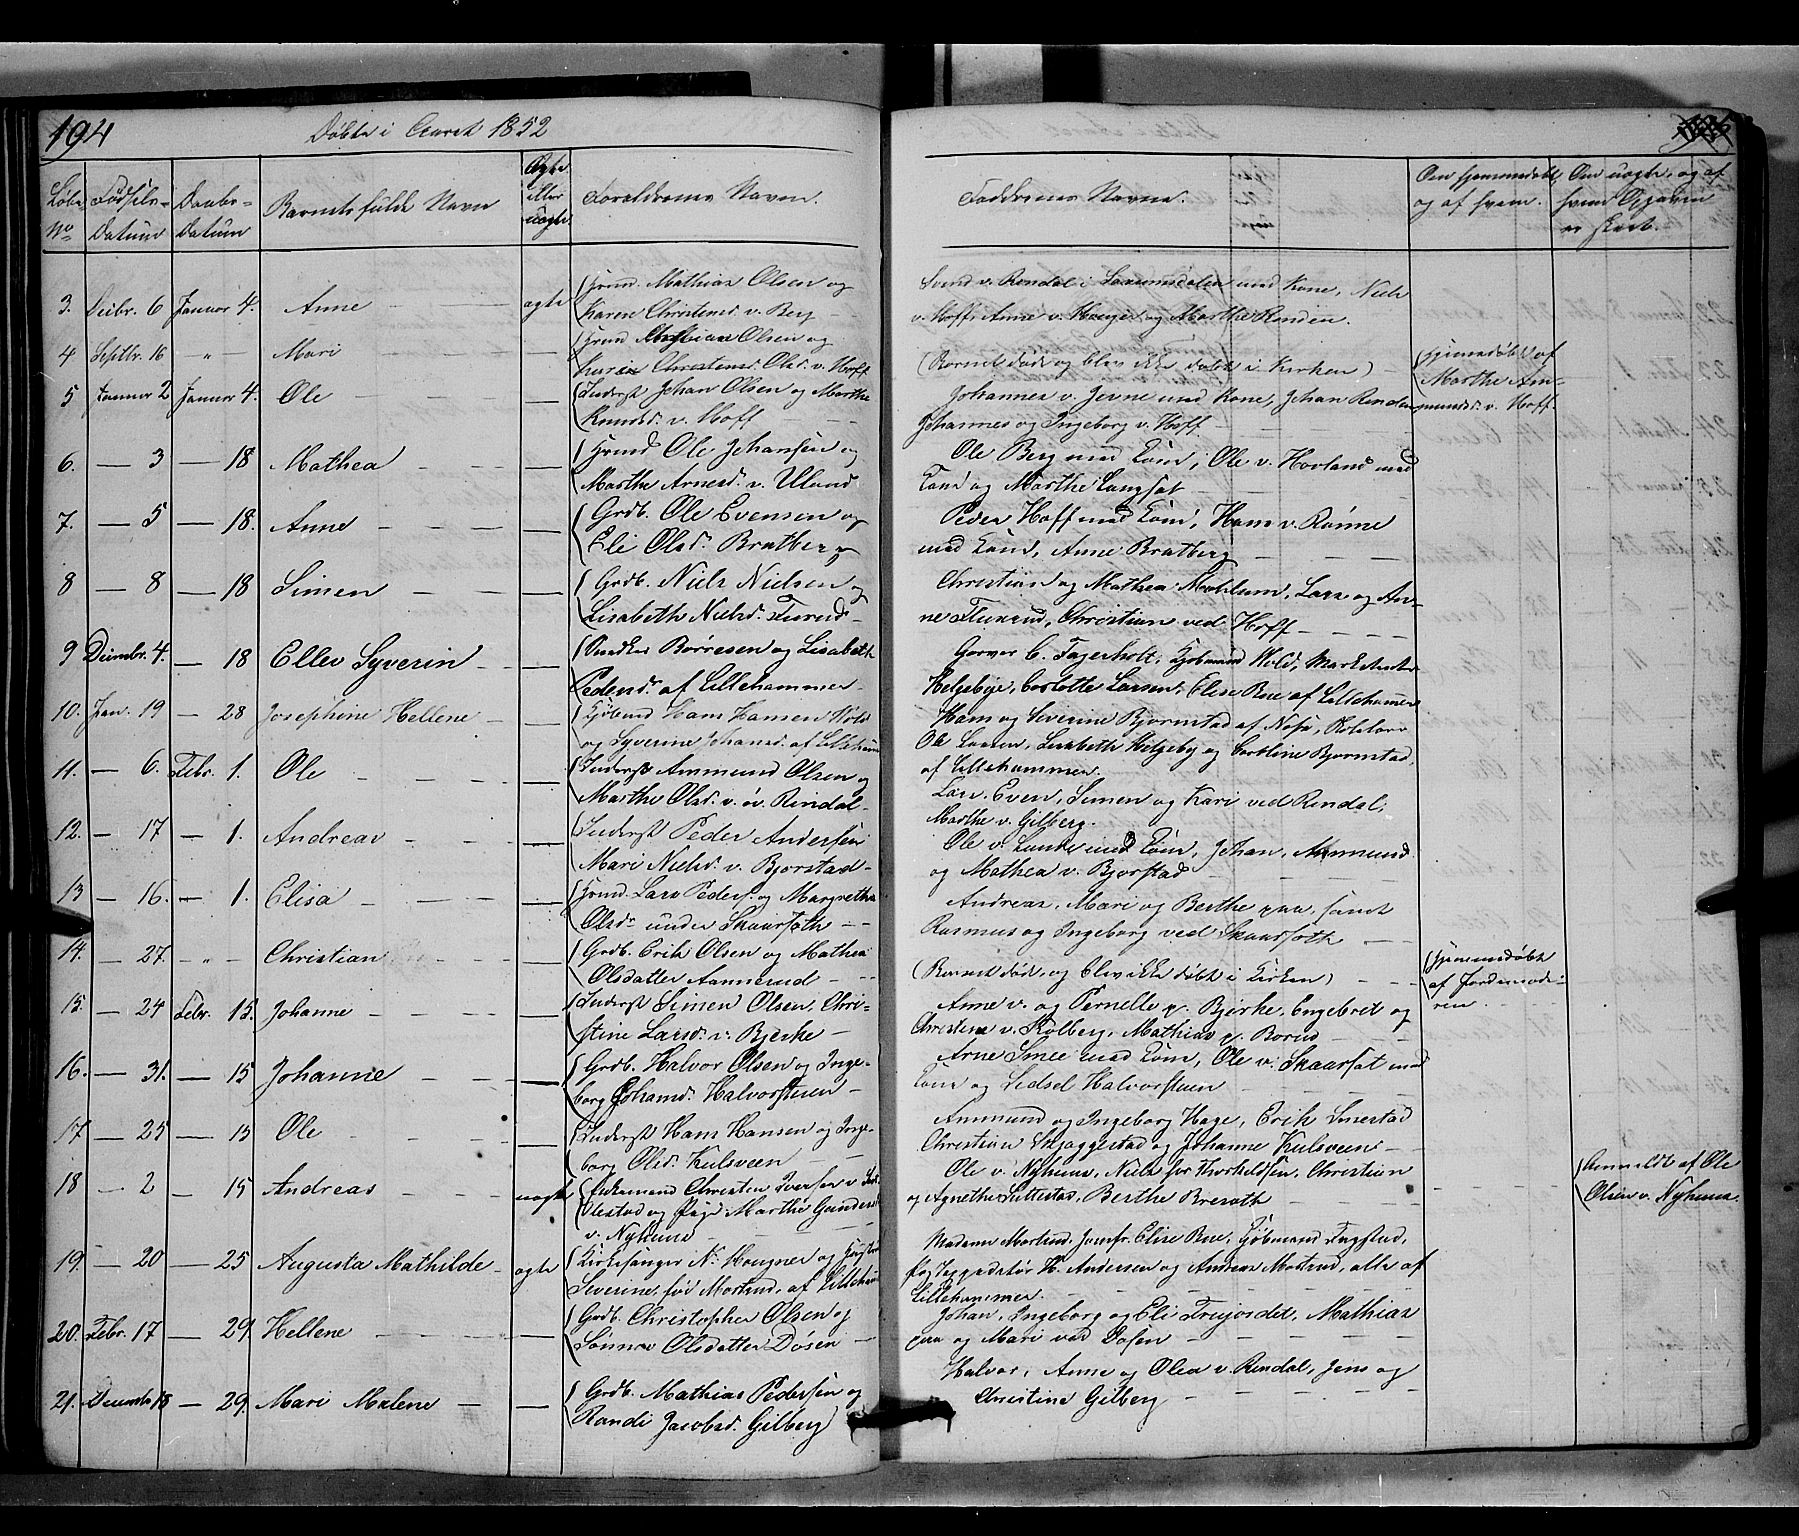 194
Døbte i Aaret 1852
Løbe No
Fødsels-Datum
Daabs-Datum
Barnets fulde Navn
Ægte eller uægte
Forældrenes Navne.
Faddrenes Navne.
Om hjemmedøbt, og af hvem.
Om uægte, og af hvem Opgaven er skeet.
3. Decbr. 6 Januar 4. Anne ægte
Grmd. Mathias Olsen og
Karen Christensd. v. Berg
Svend v. Rendal i Saxumsdalen med Kone, Niels
v. Hoff, Anne v. Hauger og Marthe Kinden.
4 Septbr. 16 - " - Mari
Grmd Olsen og
Olsd. v. Hoff
(Barnet døde og blev ikke døbt i Kirken)
Hjemmedøbt af
Marthe Am-
mundsd. v. Hoff.
5 Januar 2 Januar 4. Ole
Inderst Johan Olsen og Marthe
Knudsd. v. Hoff
Johannes v. Jevne med Kone, Johan Rendal
Johannes og Ingeborg v. Hoff
6. — 3 — 18 Mathea
Grmd Ole Johansen og
Marthe Arnesd. v. Uland
Ole Berg med Kone, Ole v. Hovland med
Kone og Marthe Langsæt
7. — 5 — 18. Anne
Grdb. Ole Evensen og
Eli Olsd. Bratberg
Peder Hoff med Kone, Hans v. Rønne
med Kone, Anne Bratberg
8 — 8 — 18 Simen
Grdb. Niels Nielsen og
Lisabeth Nielsd. Furud
Christian og Mathea Mæhlum, Lars og An-
ne Flugsrud, Christian ved Hoff
9 Decmbr. 4. — 18 Ellev Syverin
Snedker Børresen og Lisabeth
Pedersd. af Lillehammer
Garver C. Fagerholt, Kjøbmand Wold,
Helgebye, Carlotte Larsen, Elise Bue af Lillehammer
10. Jan. 19 — 28 Josephine Hellene
Kjøbmd Hans Hansen Wold
og Syverine Johansd. af Lillehammer
Hans og Severine Bjørnstad af Næs,
Ole Larsen, Lisabeth Helgeby og Caroline Bjørnstad
af Lillehammer.
11. — 6. Febr. 1. Ole
Inderst Ammund Olsen og
Marthe Olsd. v. øv. Rindal
Lars, Even, Simen og Kari ved Rendal,
Marthe v. Gilberg.
12. — 17 — 1. Andreas
Inderst Peder Andersen
Mari Nielsd. v. Bjorstad
Ole v. Lunke med Kone, Johan, Ammund
og Mathea v. Bjorstad
13 — 16. — 1. Elisa
Grmd. Lars Peders. og Margrethe
Olsdr under Skaarsæth
Andreas, Mari og Berthe paa, samt
Rasmus og Ingeborg ved Skaarsæth
14. — 27. - " - Christian
Grdb. Erik Olsen og Mathea
Olsdatter Aannerud
(Barnet døde, og blev ikke døbt i Kirken)
Hjemmedøbt
af Jordemode-
ren.
15. — 24 Febr. 15. Johanne
Inderst Simen Olsen, Chri-
stine Larsd. v. Bjerke
Anne v. og Pernelle p. Bjerke, Engebret og
Christine v. Kolberg, Mathias p. Borud
16. — 31. — 15 Johanne
Grdb. Halvor Olsen og Inge-
borg Johansd. Halvorsteen
Arne Smee med Kone, Ole v. Skaarsæt med
Kone og Sidsel Halvorsteen
17 — 25 — 15 Ole
Inderst Hans Hansen og Inge-
borg Olsd. Kulsveen
Ammund og Ingeborg Hage, Erik Smestad
Christian Skjaggestad og Johanne Kulsveen
18 — 2 — 15 Andreas uægte
Christen Iversen v.
og Pige Marthe Gundersd
v. Nyhuus
Ole v. Nyhuus, Niels for Thorkeldsen, Christian
og Agnethe Suttestad, Berthe Breroth
Anmeldt af Ole
Olsen v. Nyhuus
19. — 20 — 25 Augusta Mathilde ægte
Kirkesanger N. Haugner og Hustru
Severine, født Mostrud, af Lillehammer
Madame Mostrud, Jomfr. Elise Bue, Kjøbmand Fagstad,
H. Andersen og Andreas Mostrud, alle af
Lillehammer.
20. Febr. 17 — 29. Hellene
Grdb. Christopher Olsen og
Sønnov Olsdatter Døsen
Johan, Ingeborg og Eli Freijordet, Mathias
paa og Mari ved Døsen
21. Decmbr 18 — 29. Mari Malene
Grdb. Mathias Pedersen og
Randi Jacobsd. Gilberg
Halvor, Anne og Olea v. Rendal, Jens og
Christine Gilberg